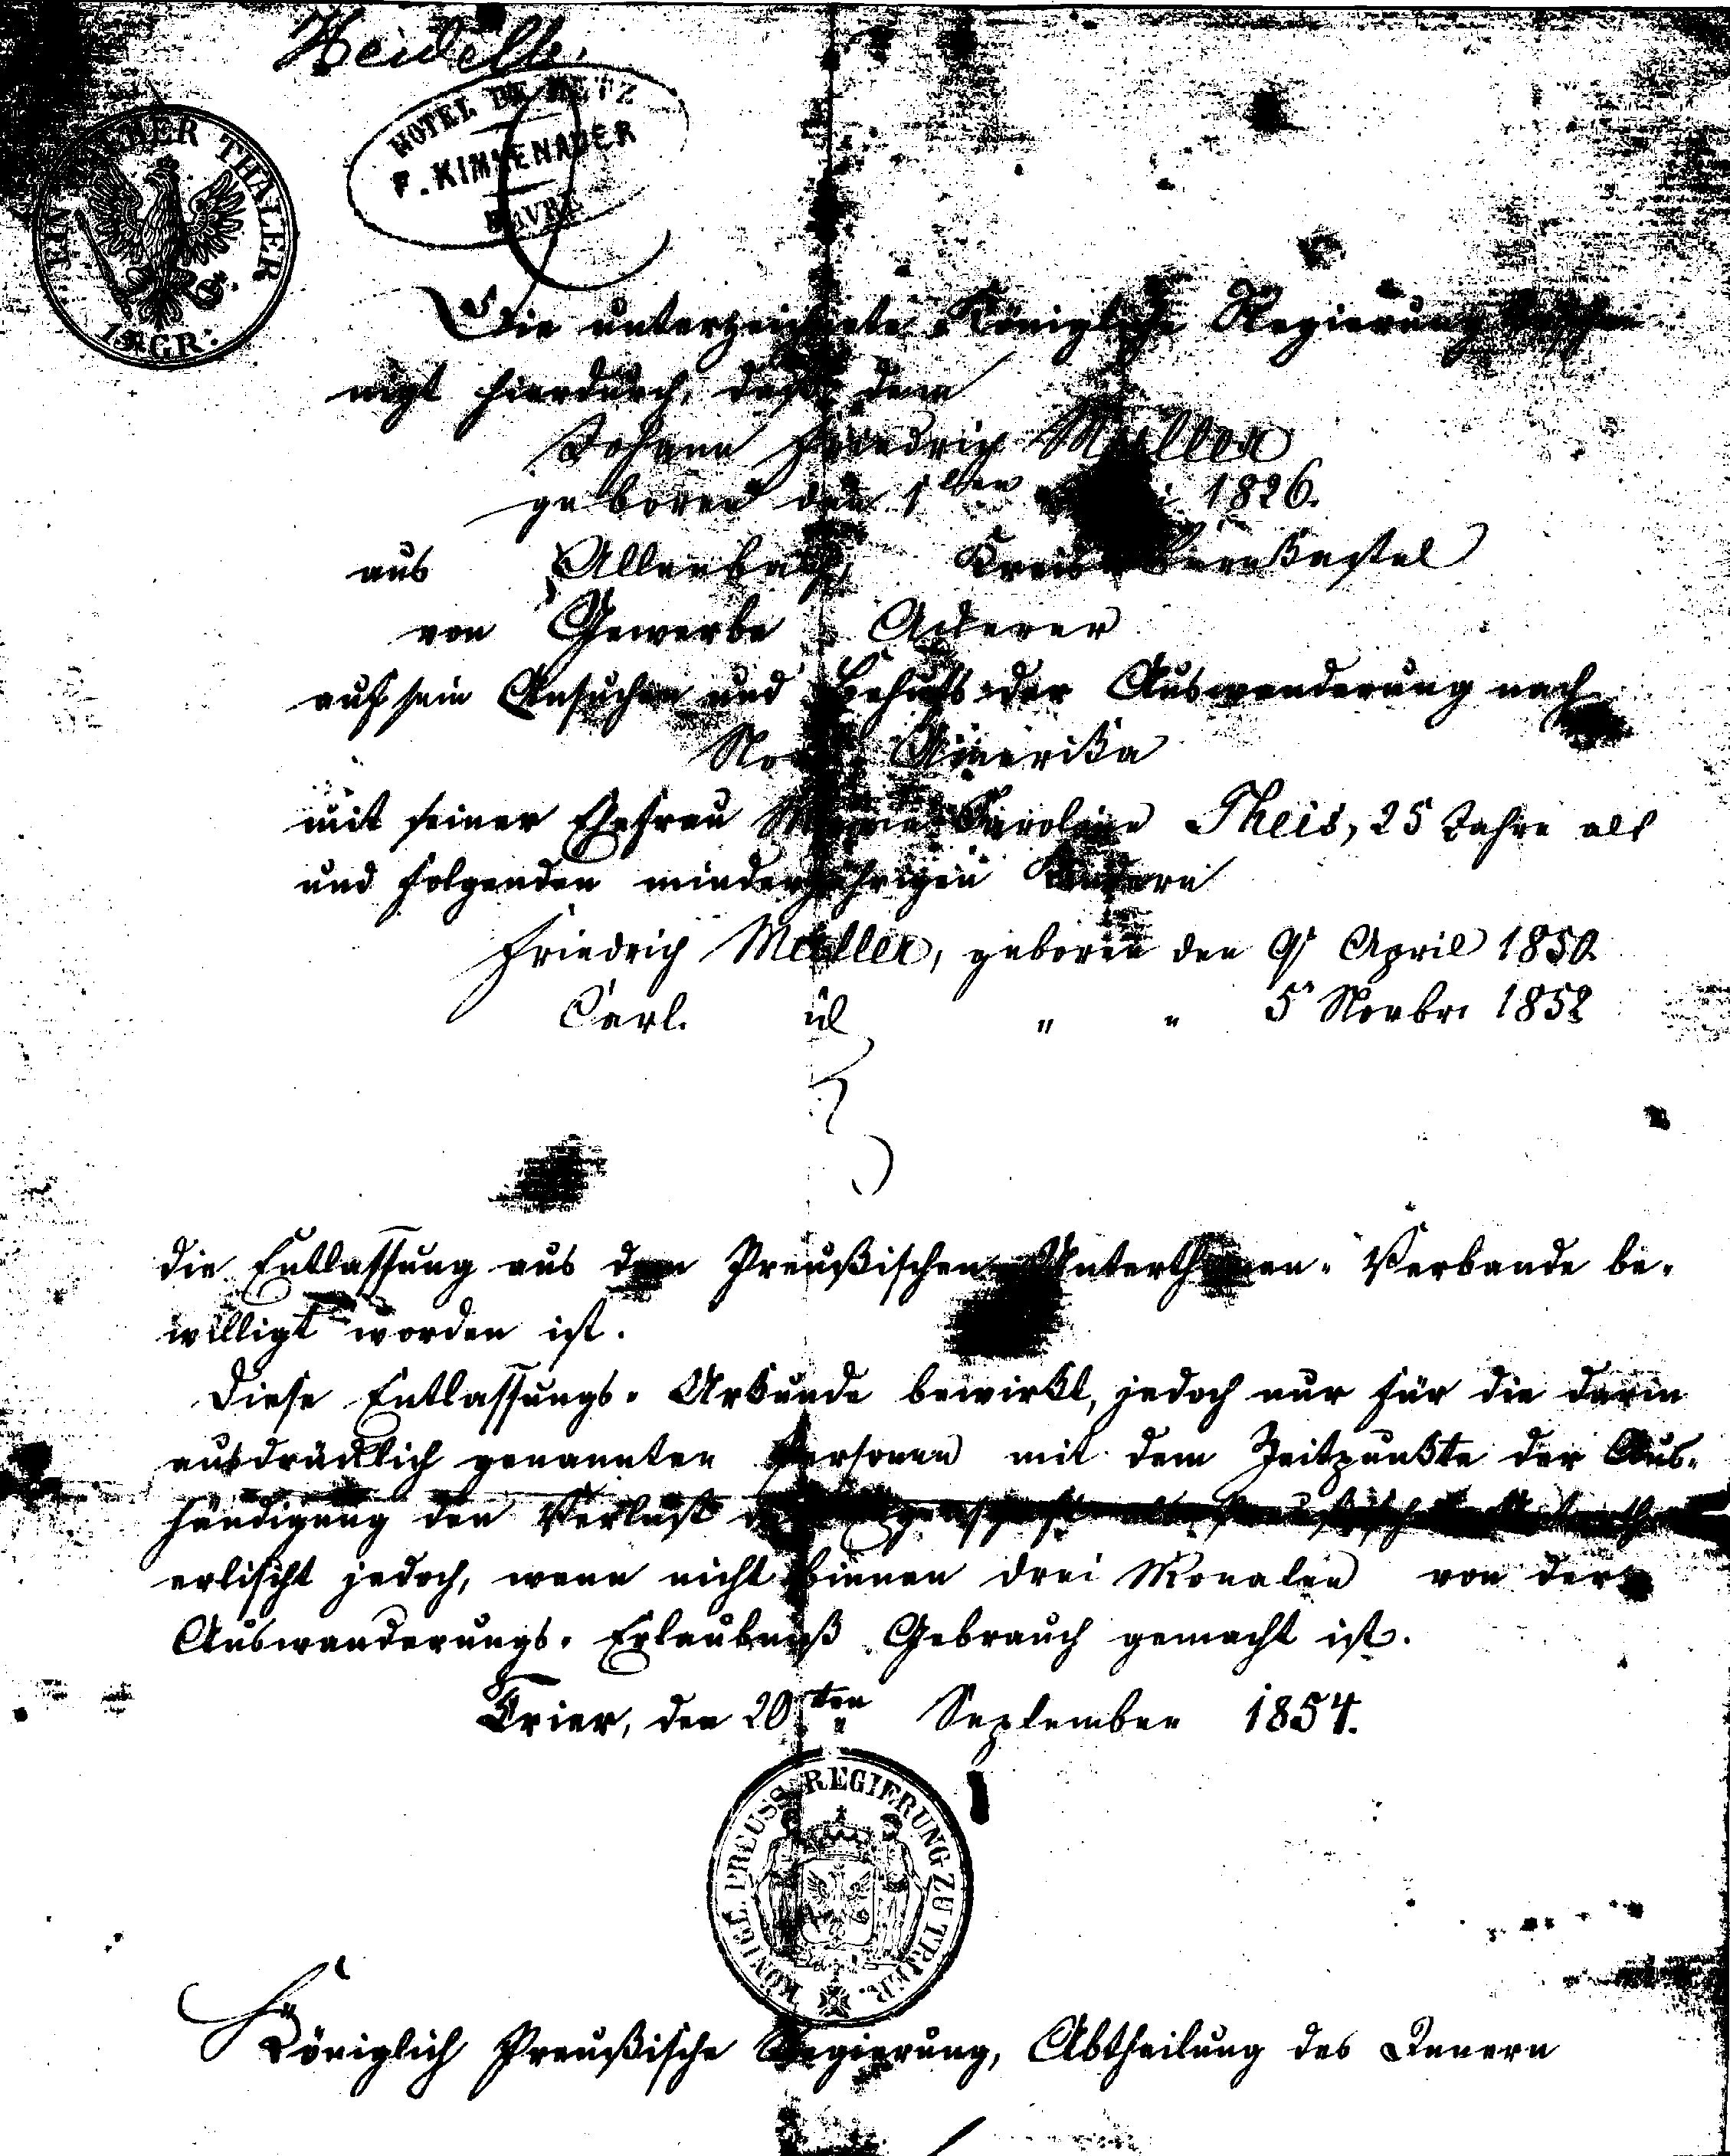 Heidelb.
HOTEL DE METZ
F. KIMMENAUER
HAVRE
EIN THALER
15 SGR:
Die unterzeichnete Königliche Regierung beschei-
nigt hierdurch, daß dem
Johann Friedrich Mueller
geboren den 1ten 1826.
aus Allenbach, Kreis Bernkastel
von Gewerbe Ackerer
auf sein Ansuchen und Behufs der Auswanderung nach
Nord Amerika
mit seiner Ehefrau Maria Caroline Theis, 25 Jahre alt
und folgenden minderjährigen Kindern
Friedrich Mueller, geboren den 9t April 1850
Carl id " " 5t Novbr. 1852
die Entlassung aus dem Preußischen Unterthanen-Verbande be-
willigt worden ist.
Diese Entlassungs-Urkunde bewirkt, jedoch nur für die darin
ausdrücklich genannten Personen mit dem Zeitpunkte der Aus-
händigung den Verlust der Eigenschaft als Preußische Unterth
erlischt jedoch, wenn nicht binnen drei Monaten von der
Auswanderungs-Erlaubniß Gebrauch gemacht ist.
Trier, den 20ten September 1854.
KÖNIGL. PREUSS. REGIERUNG ZU TRIER.
Königlich Preußische Regierung, Abtheilung des Innern